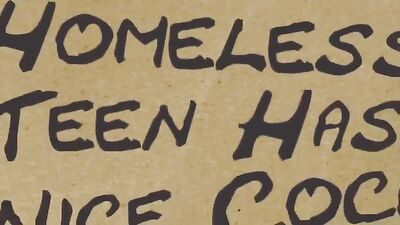 HOMELESS
TEEN HAS
NICE